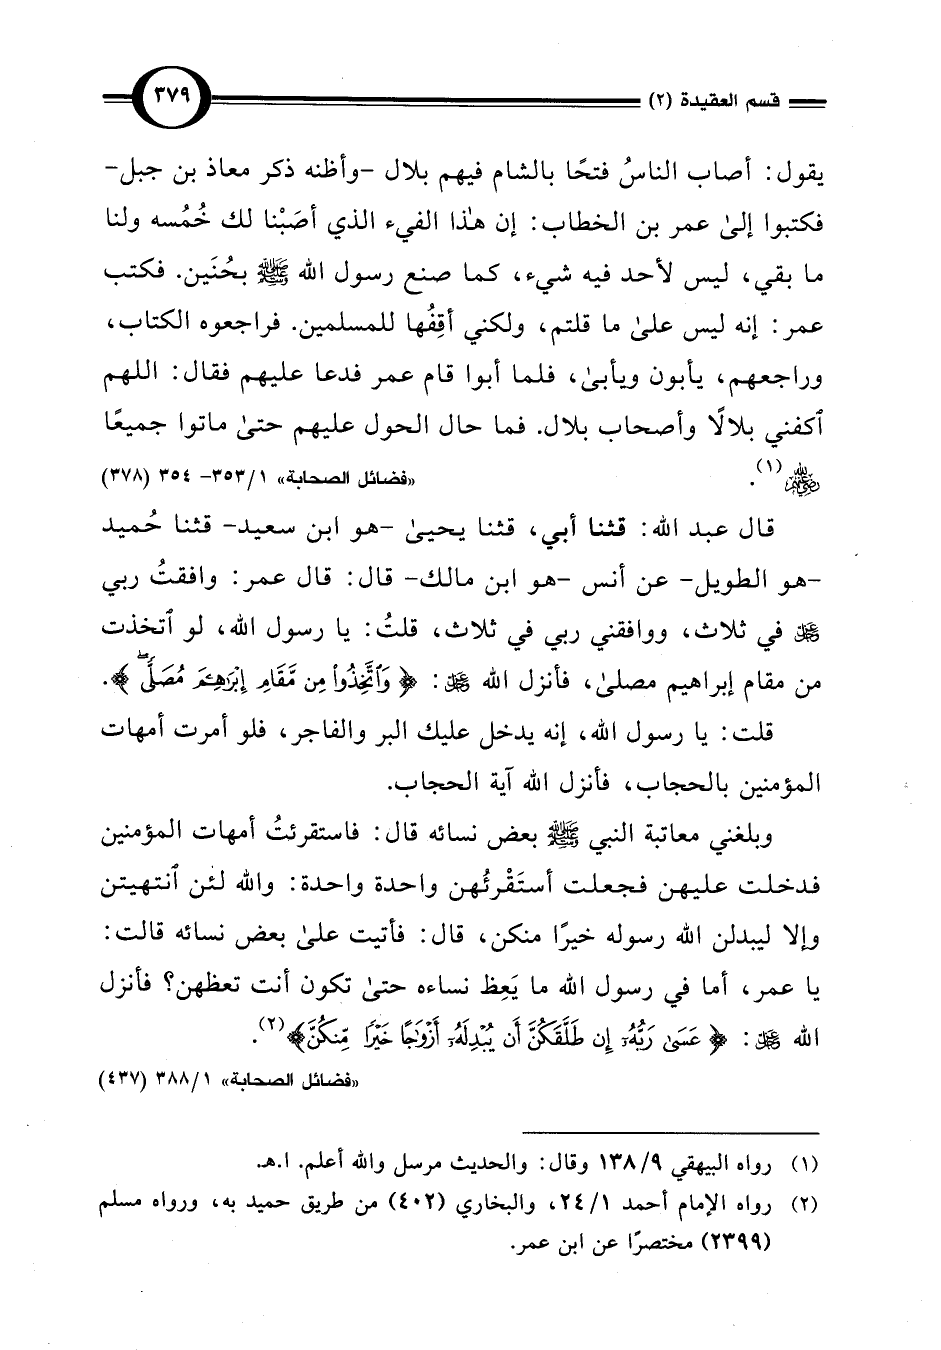 قسم العقيدة (٢)
٣٧٩
يقول: أصاب الناسُ فتحًا بالشام فيهم بلال -وأظنه ذكر معاذ بن جبل-
فكتبوا إلىٰ عمر بن الخطاب: إن هٰذا الفيء الذي أصَبْنا لك خُمُسه ولنا
ما بقي، ليس لأحد فيه شيء، كما صنع رسول الله ﷺ بحُنَين. فكتب
عمر: إنه ليس علىٰ ما قلتم، ولكني أقِفُها للمسلمين. فراجعوه الكتاب،
وراجعهم، يأبون ويأبىٰ، فلما أبوا قام عمر فدعا عليهم فقال: اللهم
ٱكفني بلالًا وأصحاب بلال. فما حال الحول عليهم حتىٰ ماتوا جميعًا
رضي الله عنهم (١).
«فضائل الصحابة» ١/ ٣٥٣- ٣٥٤ (٣٧٨)
قال عبد الله: قثنا أبي، قثنا يحيىٰ -هو ابن سعيد- قثنا حُميد
-هو الطويل- عن أنس -هو ابن مالك- قال: قال عمر: وافقتُ ربي
ﷻ في ثلاث، ووافقني ربي في ثلاث، قلتُ: يا رسول الله، لو ٱتخذت
من مقام إبراهيم مصلىٰ، فأنزل الله ﷻ: ﴿وَٱتَّخِذُواْ مِن مَّقَامِ إِبۡرَٰهِـۧمَ مُصَلّٗىۖ﴾.
قلت: يا رسول الله، إنه يدخل عليك البر والفاجر، فلو أمرت أمهات
المؤمنين بالحجاب، فأنزل الله آية الحجاب.
وبلغني معاتبة النبي ﷺ بعض نسائه قال: فاستقرئتُ أمهات المؤمنين
فدخلت عليهن فجعلت أستَقْرئُهن واحدة واحدة: والله لئن ٱنتهيتن
وإلا ليبدلن الله رسوله خيرًا منكن، قال: فأتيت علىٰ بعض نسائه قالت:
يا عمر، أما في رسول الله ما يَعِظ نساءه حتىٰ تكون أنت تعظهن؟ فأنزل
الله ﷻ: ﴿عَسَىٰ رَبُّهُۥٓ إِن طَلَّقَكُنَّ أَن يُبۡدِلَهُۥٓ أَزۡوَٰجًا خَيۡرٗا مِّنكُنَّ﴾(٢).
«فضائل الصحابة» ١/ ٣٨٨ (٤٣٧)
(١) رواه البيهقي ٩/ ١٣٨ وقال: والحديث مرسل والله أعلم. ا.هـ.
(٢) رواه الإمام أحمد ١/ ٢٤، والبخاري (٤٠٢) من طريق حميد به، ورواه مسلم
(٢٣٩٩) مختصرًا عن ابن عمر.